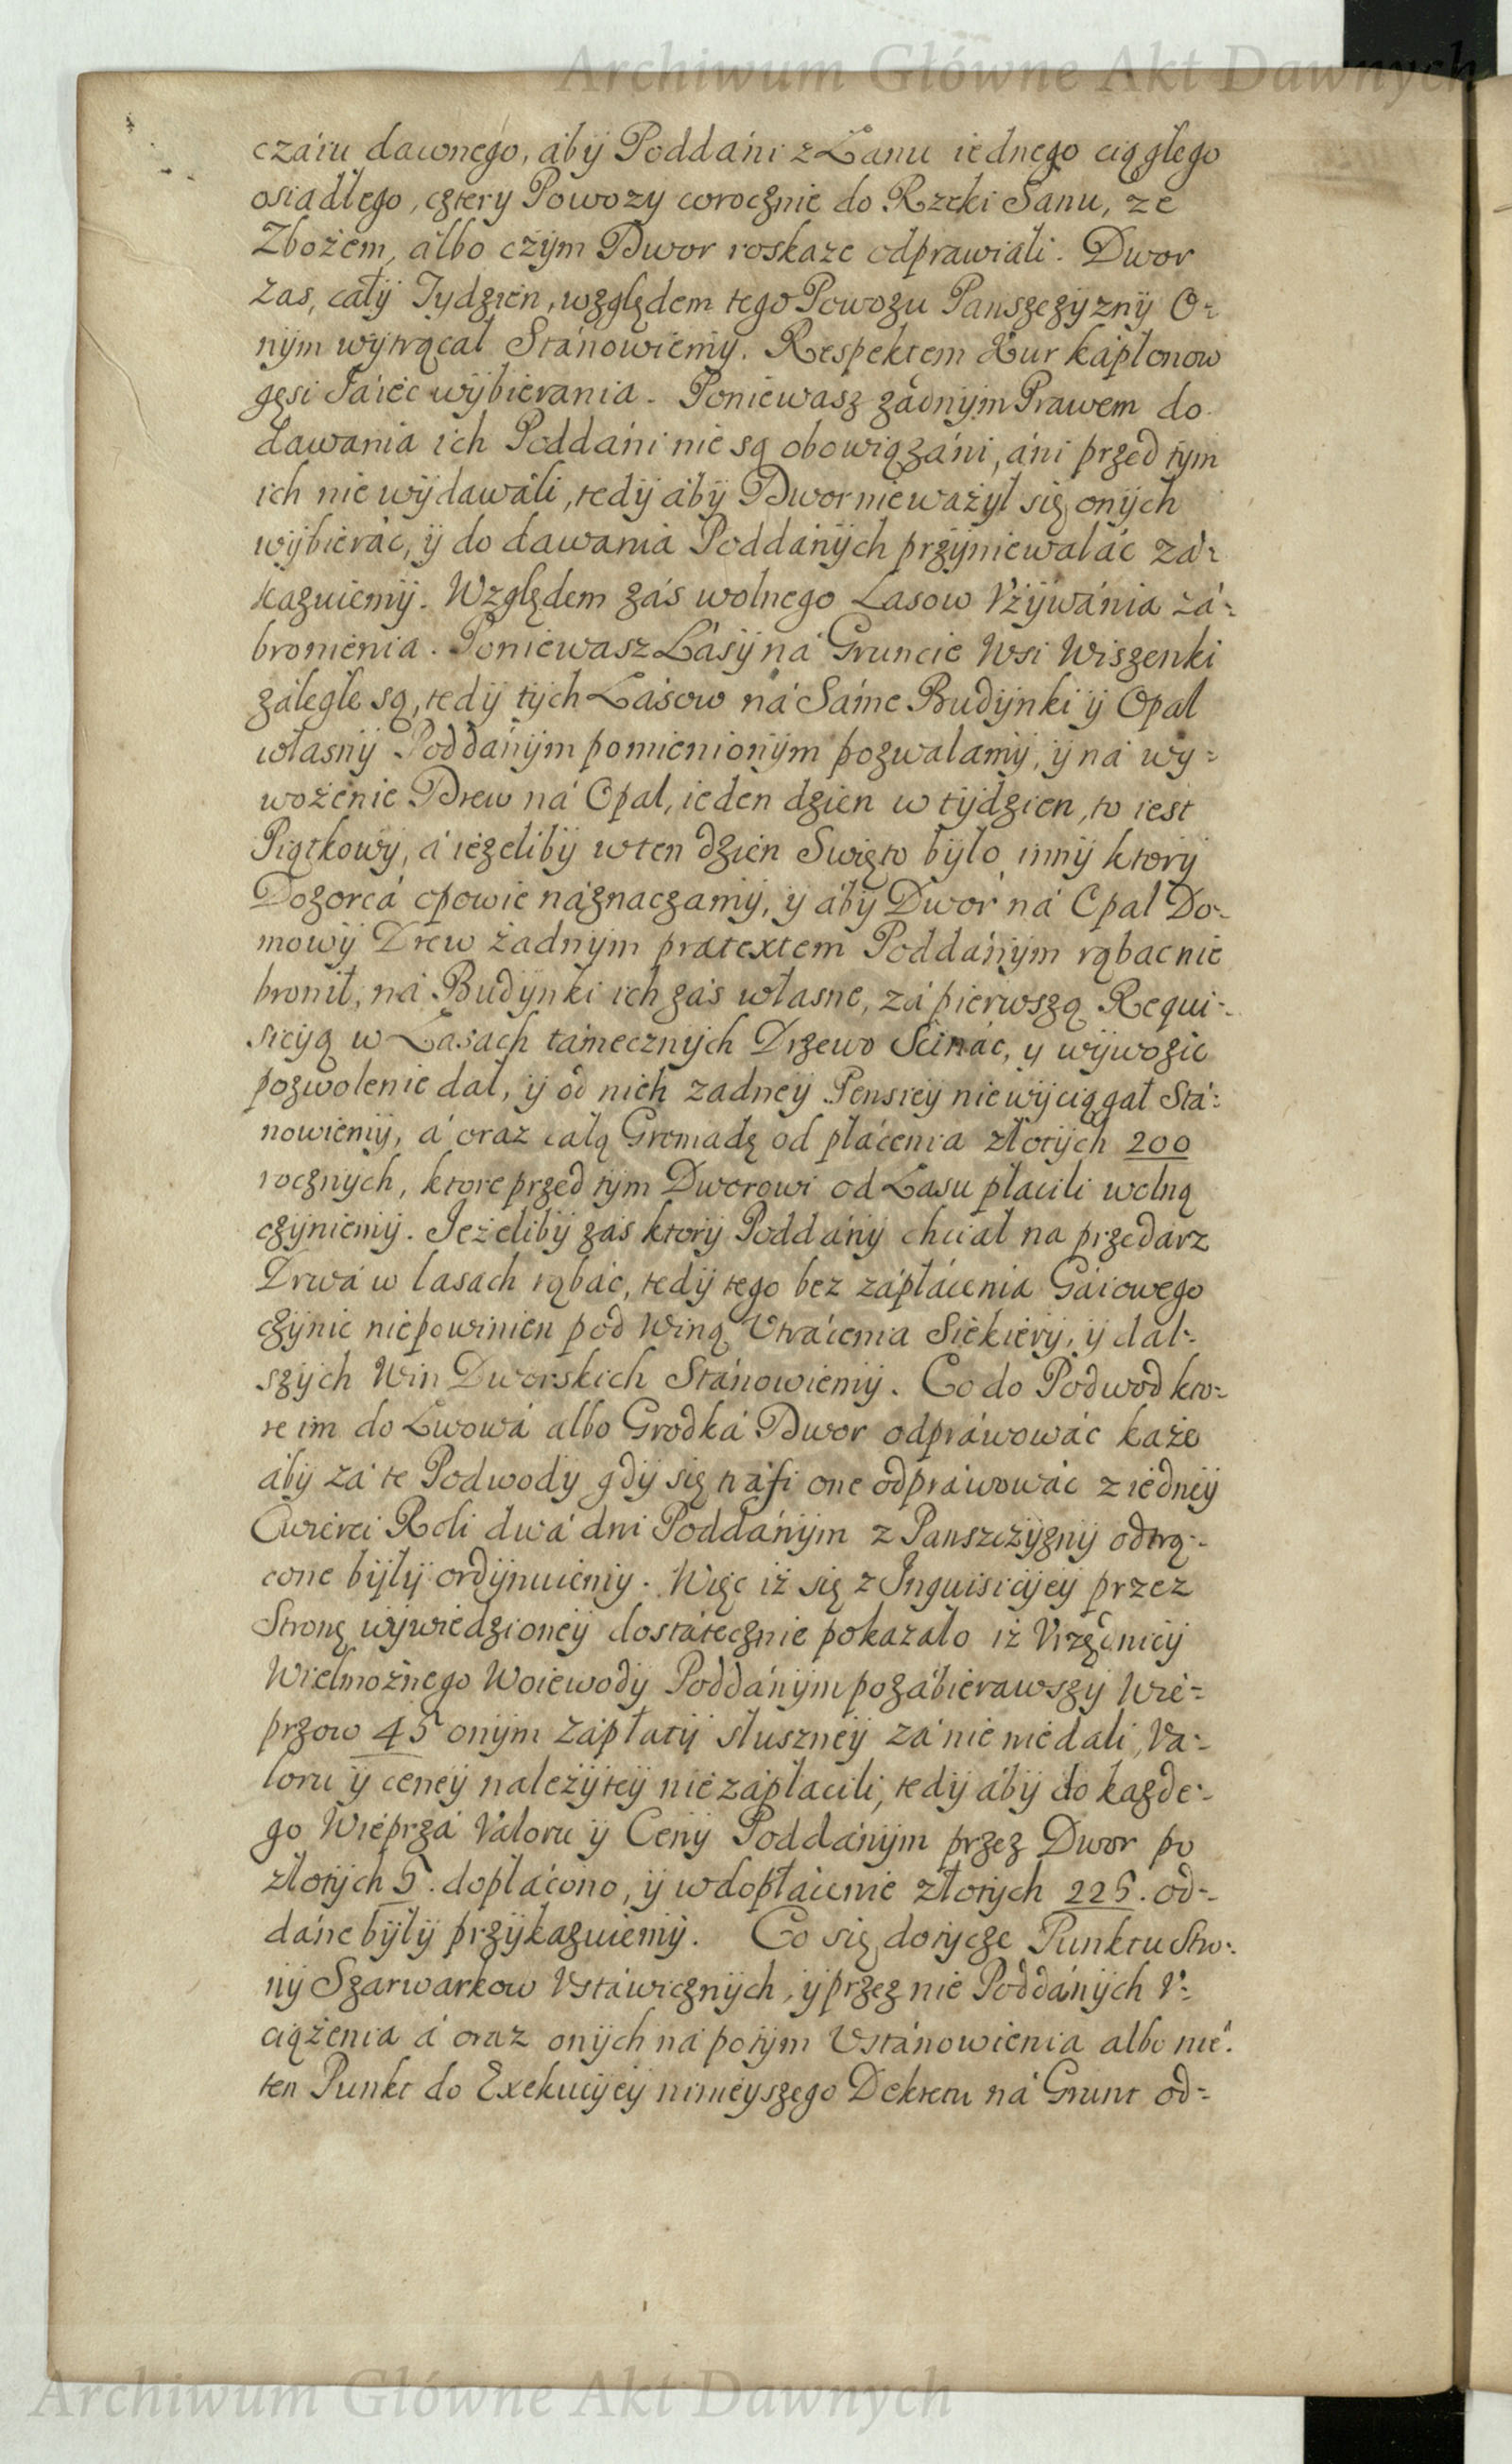 Archiwum Główne Akt Dawnych
czáiu dawnego, áby Poddáni z Łanu iednego ciągłego
osiadłego, cztery Powozy corocznie do Rzeki Sanu, ze
Zbożem, álbo czým Dwor roskaze odprawiáli. Dwor
zas, cáłý Tydzień, względem tego Powozu Panszczyzný O-
ným wýtrącał Stánowiemý. Respektem Kur kápłonow
gęsi Jáiec wýbierania. Poniewasz żadným Prawem do
dawania ich Poddáni nie są obowiązáni, áni przed tým
ich nie wýdawáli, tedý ábý Dwor nieważýł się oných
wýbieráć, ý do dawania Poddáných przýniewaláć zá-
kazuiemý. Względem zás wolnego Lasow Vżýwánia zá-
bronienia. Poniewasz Lásý ná Gruncie Wsi Wiszenki
záległe są, tedý tých Lásow ná Sáme Budýnki ý Opał
własný Poddáným pomienioným pozwalamý, ý ná wy-
wożenie Drew ná Opał, ieden dzien w týdzien, to iest
Piątkowý, á ieżelibý w ten dzień Swięto býło, inný ktorý
Dozorcá opowie náznaczamý, ý ábý Dwor ná Opał Do-
mowý Drew żadným prætextem Poddáným rąbac nie
bronił, ná Budýnki ich zás własne, zá pierwszą Requi-
sicýą w Lasach támecznych Drzewo Scináć, y wýwozic
pozwolenie dał, ý od nich zadneý Pensieý nie wýciągał Stá-
nowiemý, á oraz całą Gromadę od płácenia złotých 200
rocznych, ktore przed tým Dworowi od Lasu płacili wolną
czýniemý. Jeżelibý zás ktorý Poddáný chciał na przedarz
Drwá w lasach rąbáć, tedý tego bez zápłácenia Gáiowego
czýnic niepowinien pod Winą Vtrácenia Siekierý, ý dal-
szých Win Dworskich Stánowiemý. Co do Podwod kto-
re im do Lwowá albo Grodká Dwor odpráwowáć każe
ábý zá te Podwodý gdý się tráfi one odpráwowáć z iedneý
Cwierci Roli dwá dni Poddáným z Panszczýzný odtrą-
cone býłý ordýnuiemý. Więc iż się z Inquisicýeý przez
Stronę wýwiedzioneý dostátecznie pokazało iż Vrzędnicý
Wielmożnego Woiewodý Poddáným pozábierawszý Wie-
przow 45 oným zapłatý słuszneý zá nie nie dali, Va-
loru ý ceneý należýteý nie zápłacili, tedý ábý do kazde-
go Wieprzá Váloru ý Ceny Poddáným przez Dwor po
złotých 5. dopłácono, ý w dopłácenie złotých 225. od-
dáne býłý przýkazuiemý. Co się dotycze Punktu Stro-
ný Szarwarkow Vstáwicznych, ý przez nie Poddáných V-
ciążenia á oraz oných ná potým Vstánowienia albo nie.
ten Punkt do Exekucýeý ninieýszego Dekretu ná Grunt od-
Archiwum Główne Akt Dawnych